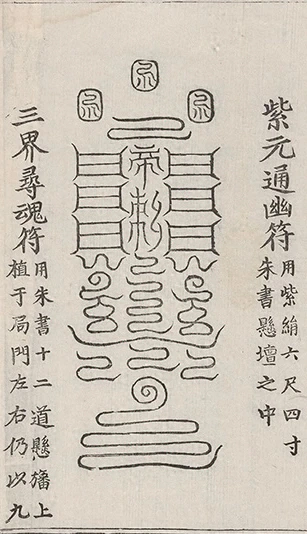 紫元通幽符
用紫絹六尺四寸
朱書懸壇之中
帝勑
三界尋魂符
用朱書十二道懸旛上
植于局門左右仍以九